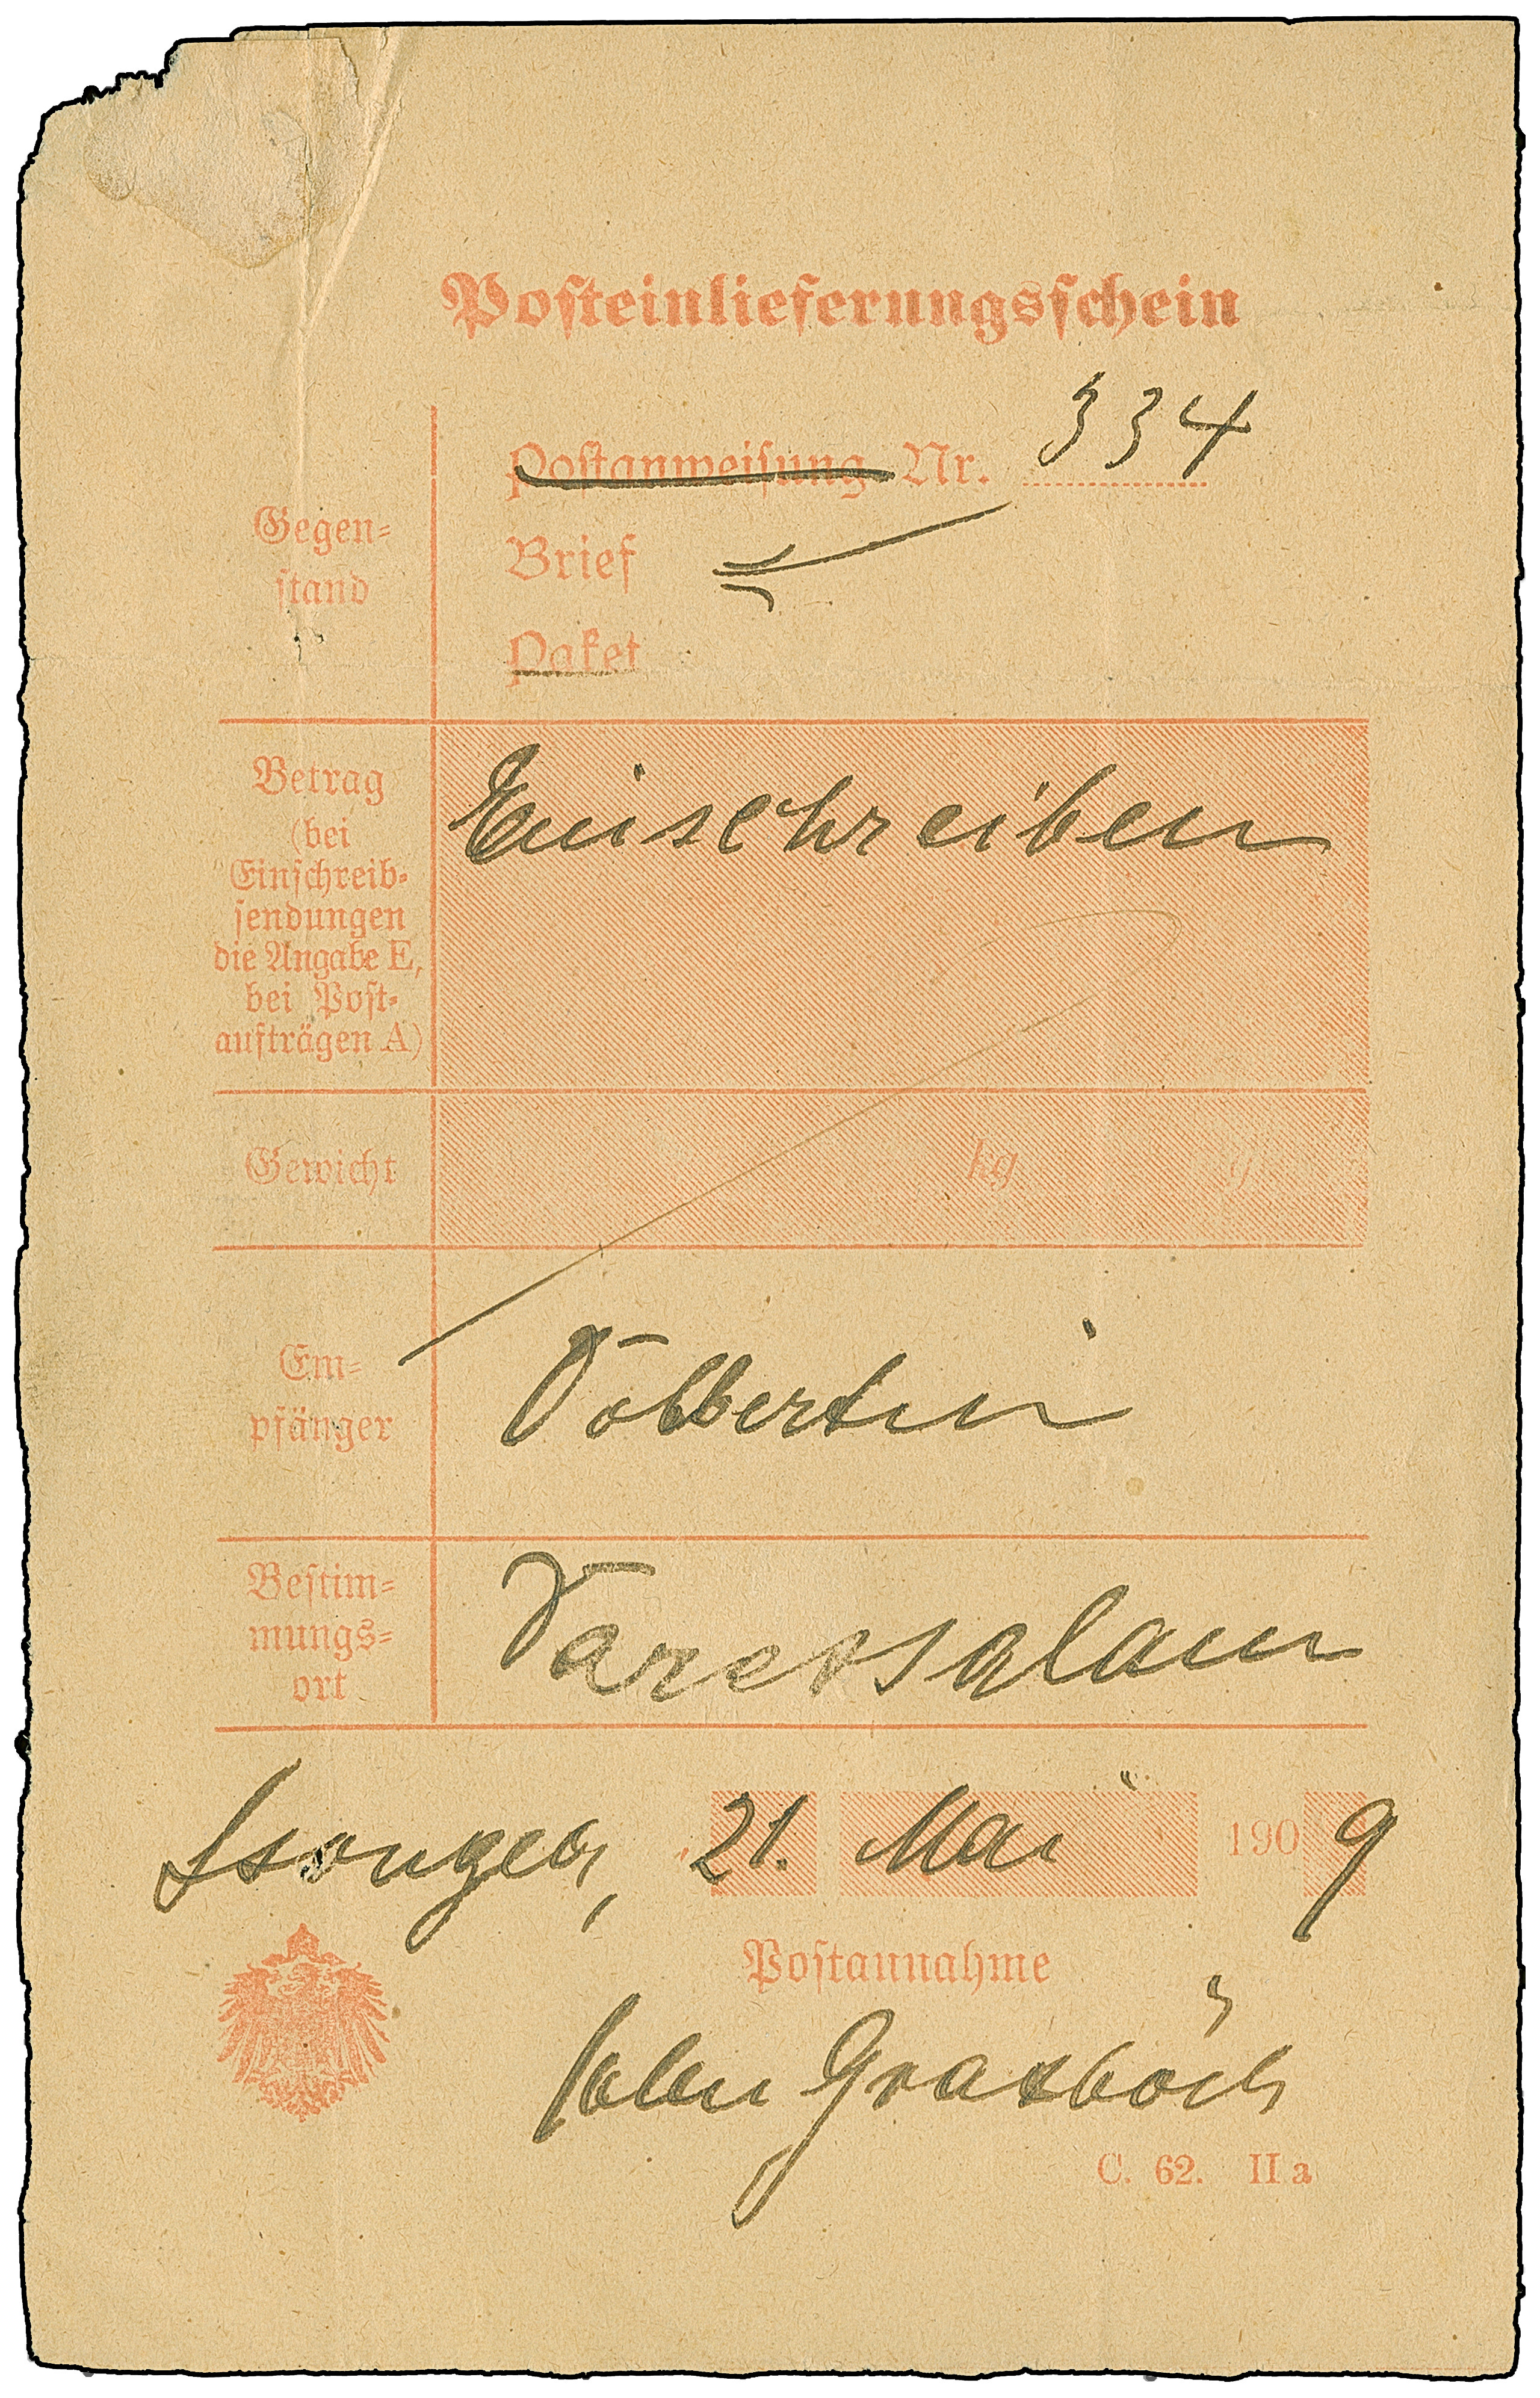 Posteinlieferungsschein
Postanweisung Nr. 334
Gegen=
stand
Brief
Paket
Betrag
(bei
Einschreib=
sendungen
die Angabe E,
bei Post=
aufträgen A)
Einschreiben
Gewicht
kg g
Em=
pfänger
Dobbertin
Bestim=
mungs=
ort
Daressalam
Ssongea, 21. Mai 1909
Postannahme
C. 62. II a